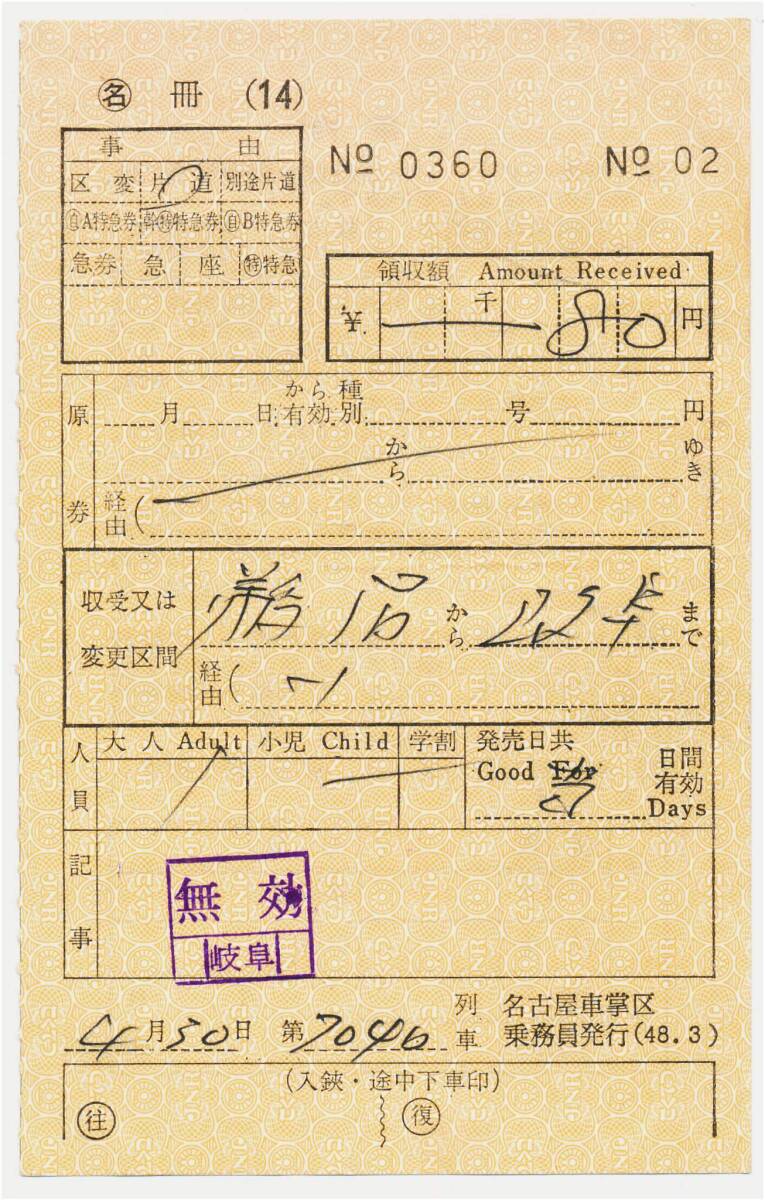 ㊔ 冊 (14)
事 由
№ 0360 № 02
区 変 片 道 別途片道
自A特急券 幹㊕特急券 自B特急券
急券 急 座 ㊕特急
領収額 Amount Received
¥ 千 80 円
原券
月 日から有効 種別 号 円
から ゆき
経由(
収受又は変更区間
から 岐阜 まで
経由(
人員
大人 Adult 小児 Child 学割 発売日共
Good For 日間有効
Days
記事
無効
岐阜
4月30日 第704b 列車 名古屋車掌区
乗務員発行(48.3)
(入鋏・途中下車印)
往 復